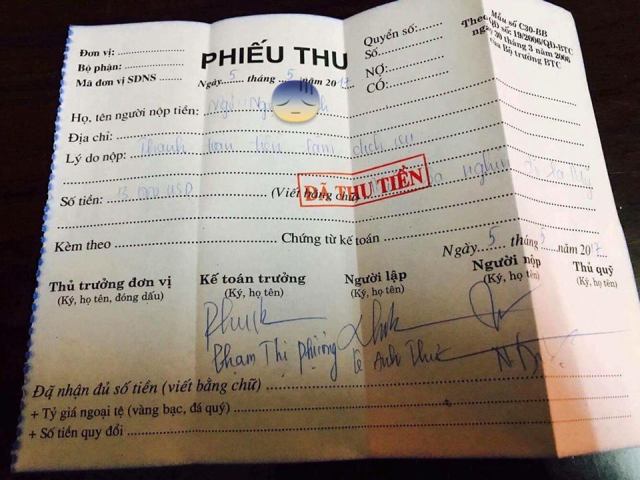 Đơn vị:
Bộ phận:
Mã đơn vị SDNS
PHIẾU THU
Ngày 5 tháng 5 năm 2017
Quyển số:
Số:
NỢ:
CÓ:
Mẫu số C30-BB
Theo QĐ số 19/2006/QĐ-BTC
ngày 30 tháng 3 năm 2006
của Bộ trưởng BTC
Họ, tên người nộp tiền:
Địa chỉ:
Lý do nộp: Thanh toán tiền làm dịch vụ
Số tiền: USD (Viết bằng chữ)
ĐÃ THU TIỀN
Kèm theo Chứng từ kế toán
Ngày 5 tháng 5 năm 2017
Thủ trưởng đơn vị
(Ký, họ tên, đóng dấu)
Kế toán trưởng
(Ký, họ tên)
Người lập
(Ký, họ tên)
Người nộp
(Ký, họ tên)
Thủ quỹ
(Ký, họ tên)
Phạm Thị Phượng
Lê Anh Thư
Đã nhận đủ số tiền (viết bằng chữ)
+ Tỷ giá ngoại tệ (vàng bạc, đá quý)
+ Số tiền quy đổi